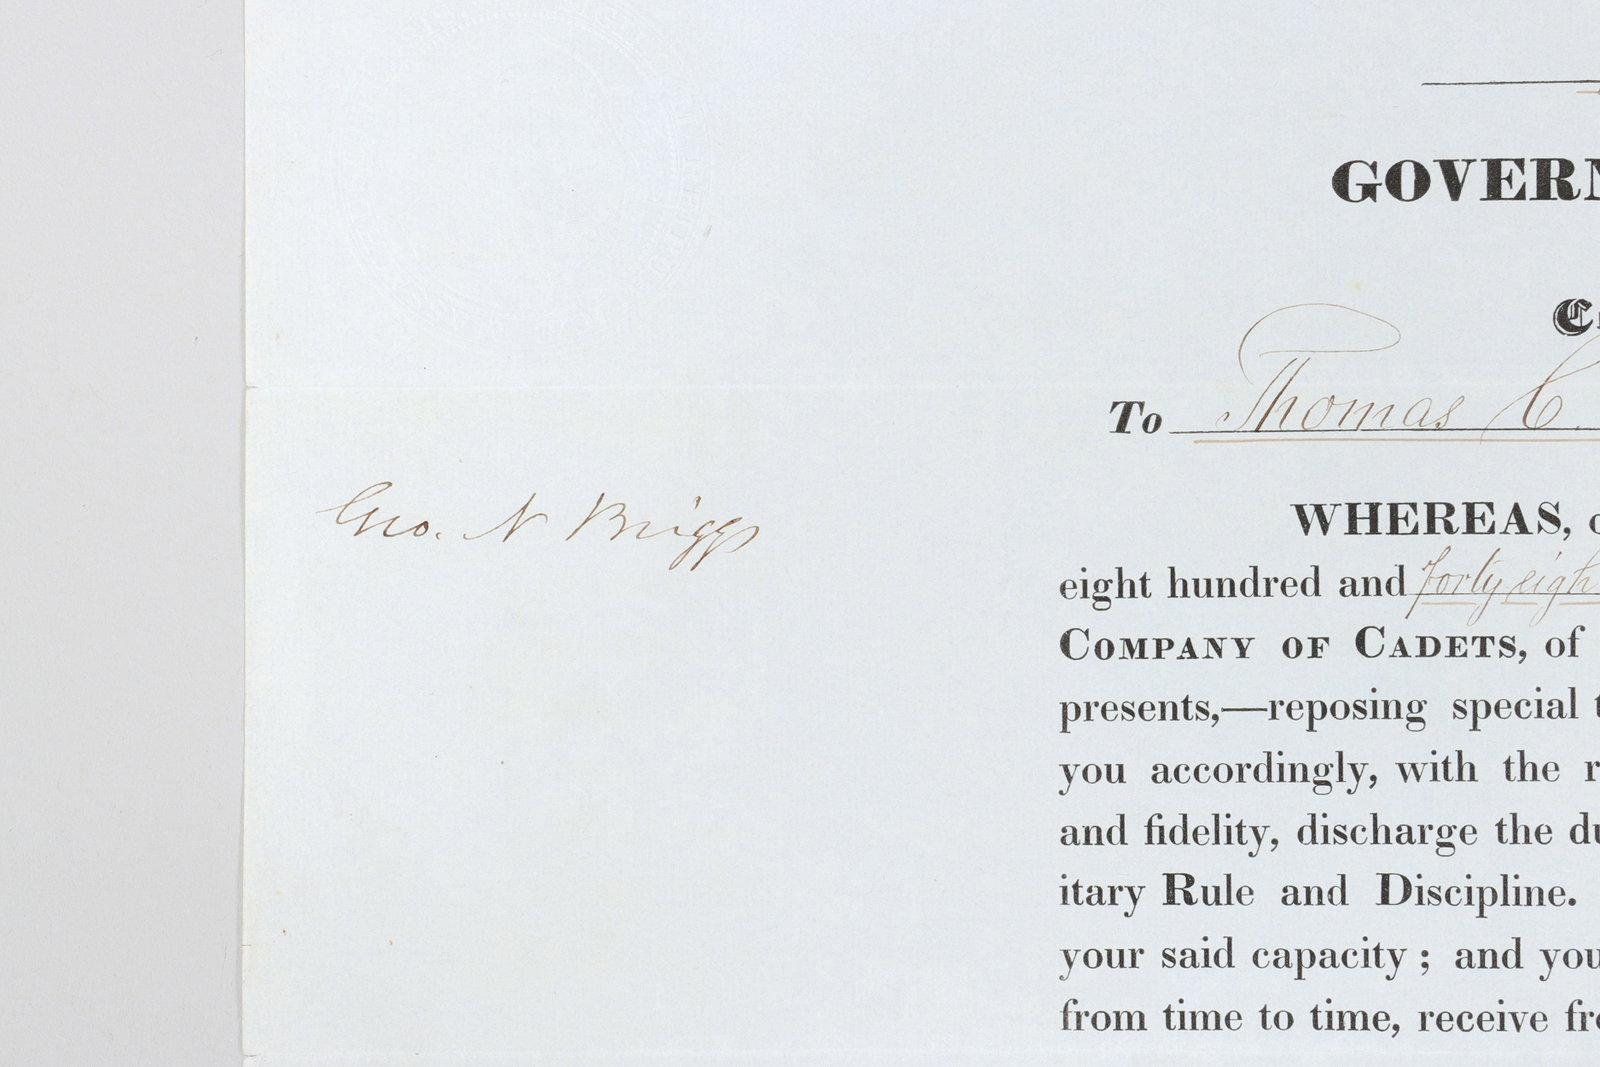 GOVERN
To Thomas C.
Geo. N Briggs
WHEREAS,
eight hundred and forty eigh
COMPANY OF CADETS, of
presents,—reposing special
you accordingly, with the
and fidelity, discharge the du
itary Rule and Discipline.
your said capacity; and you
from time to time, receive fro